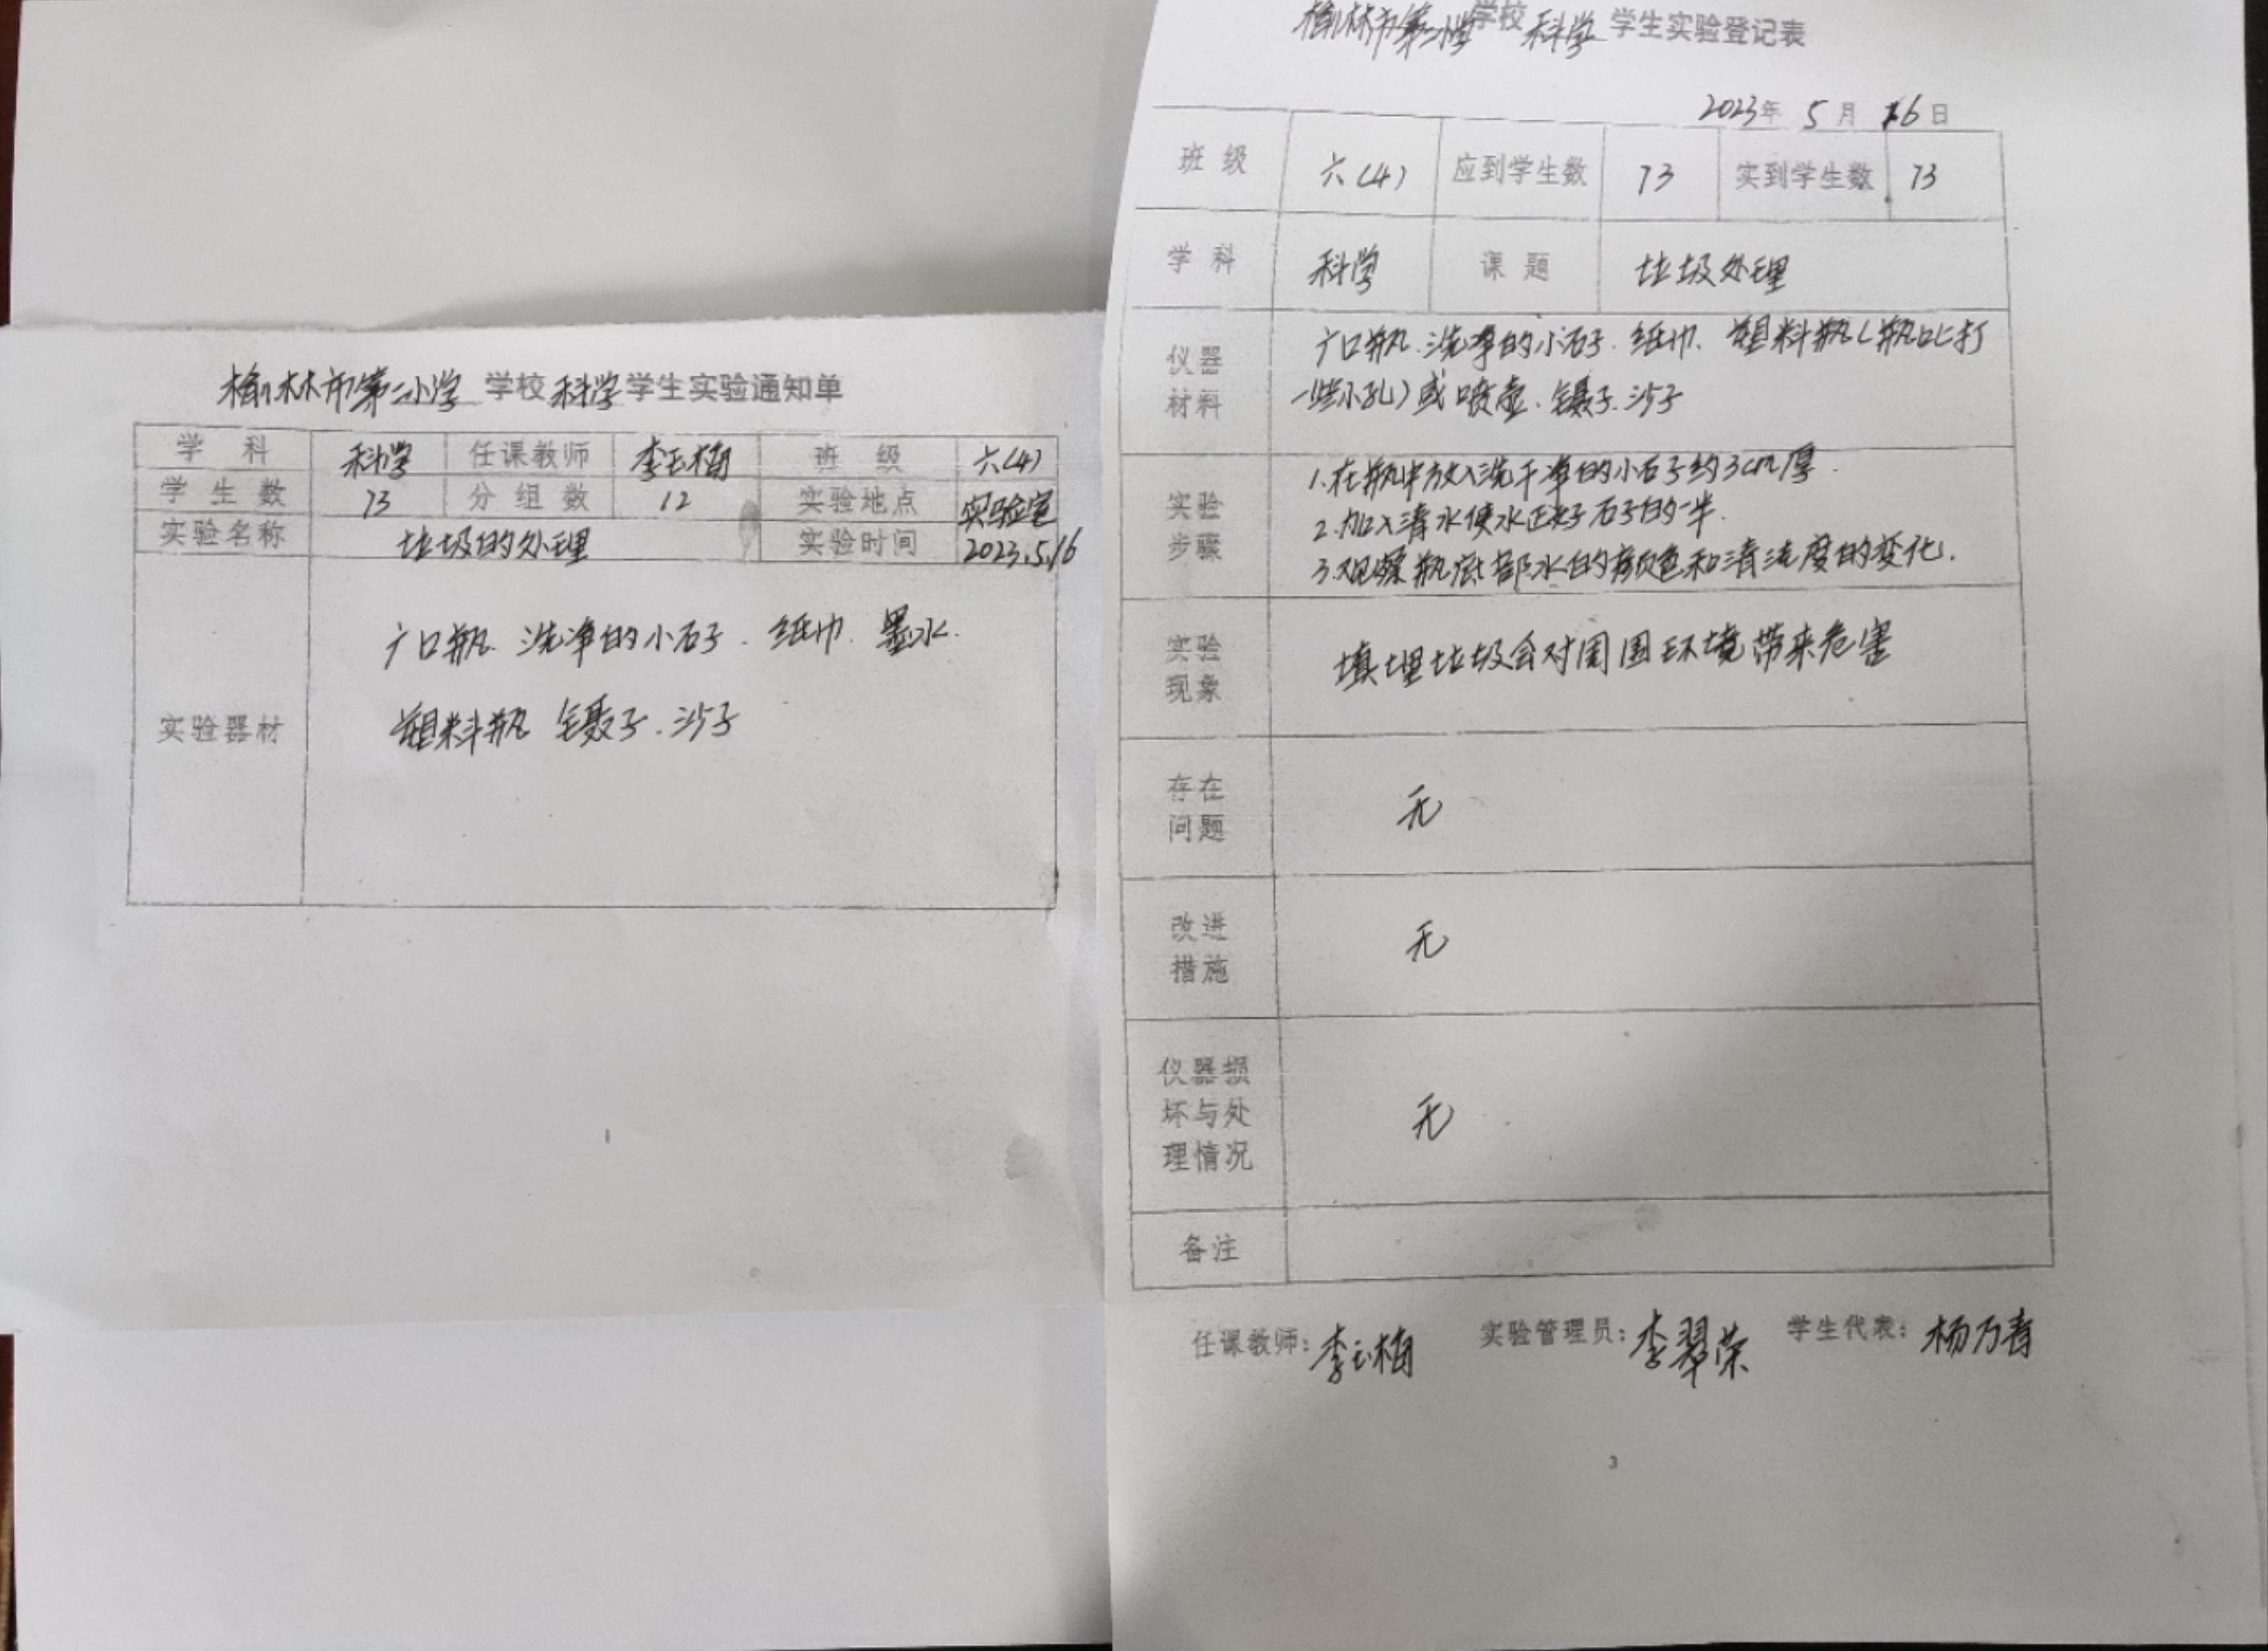 榆林市第二小学 学校 科学 学生实验通知单
学 科 科学 任课教师 李玉梅 班 级 六(4)
学 生 数 73 分 组 数 12 实验地点 实验室
实验名称 垃圾的处理 实验时间 2023.5.16
实验器材
广口瓶 洗净的小石子. 纸巾. 墨水.
塑料瓶 镊子. 沙子
1
榆林市第二小学 学校 科学 学生实验登记表
2023年 5 月 16 日
班 级 六(4) 应到学生数 73 实到学生数 73
学 科 科学 课 题 垃圾处理
仪器
材料
广口瓶. 洗净的小石子. 纸巾. 塑料瓶(瓶口上打
一些小孔)或喷壶. 镊子. 沙子
实验
步骤
1.在瓶中放入洗干净的小石子约3cm厚.
2.加入清水使水正好石子的一半.
3.观察瓶底部水的颜色和清洁度的变化.
实验
现象
填埋垃圾会对周围环境带来危害
存在
问题
无
改进
措施
无
仪器损
坏与处
理情况
无
备注
任课教师: 李玉梅 实验管理员: 李翠荣 学生代表: 杨万春
3